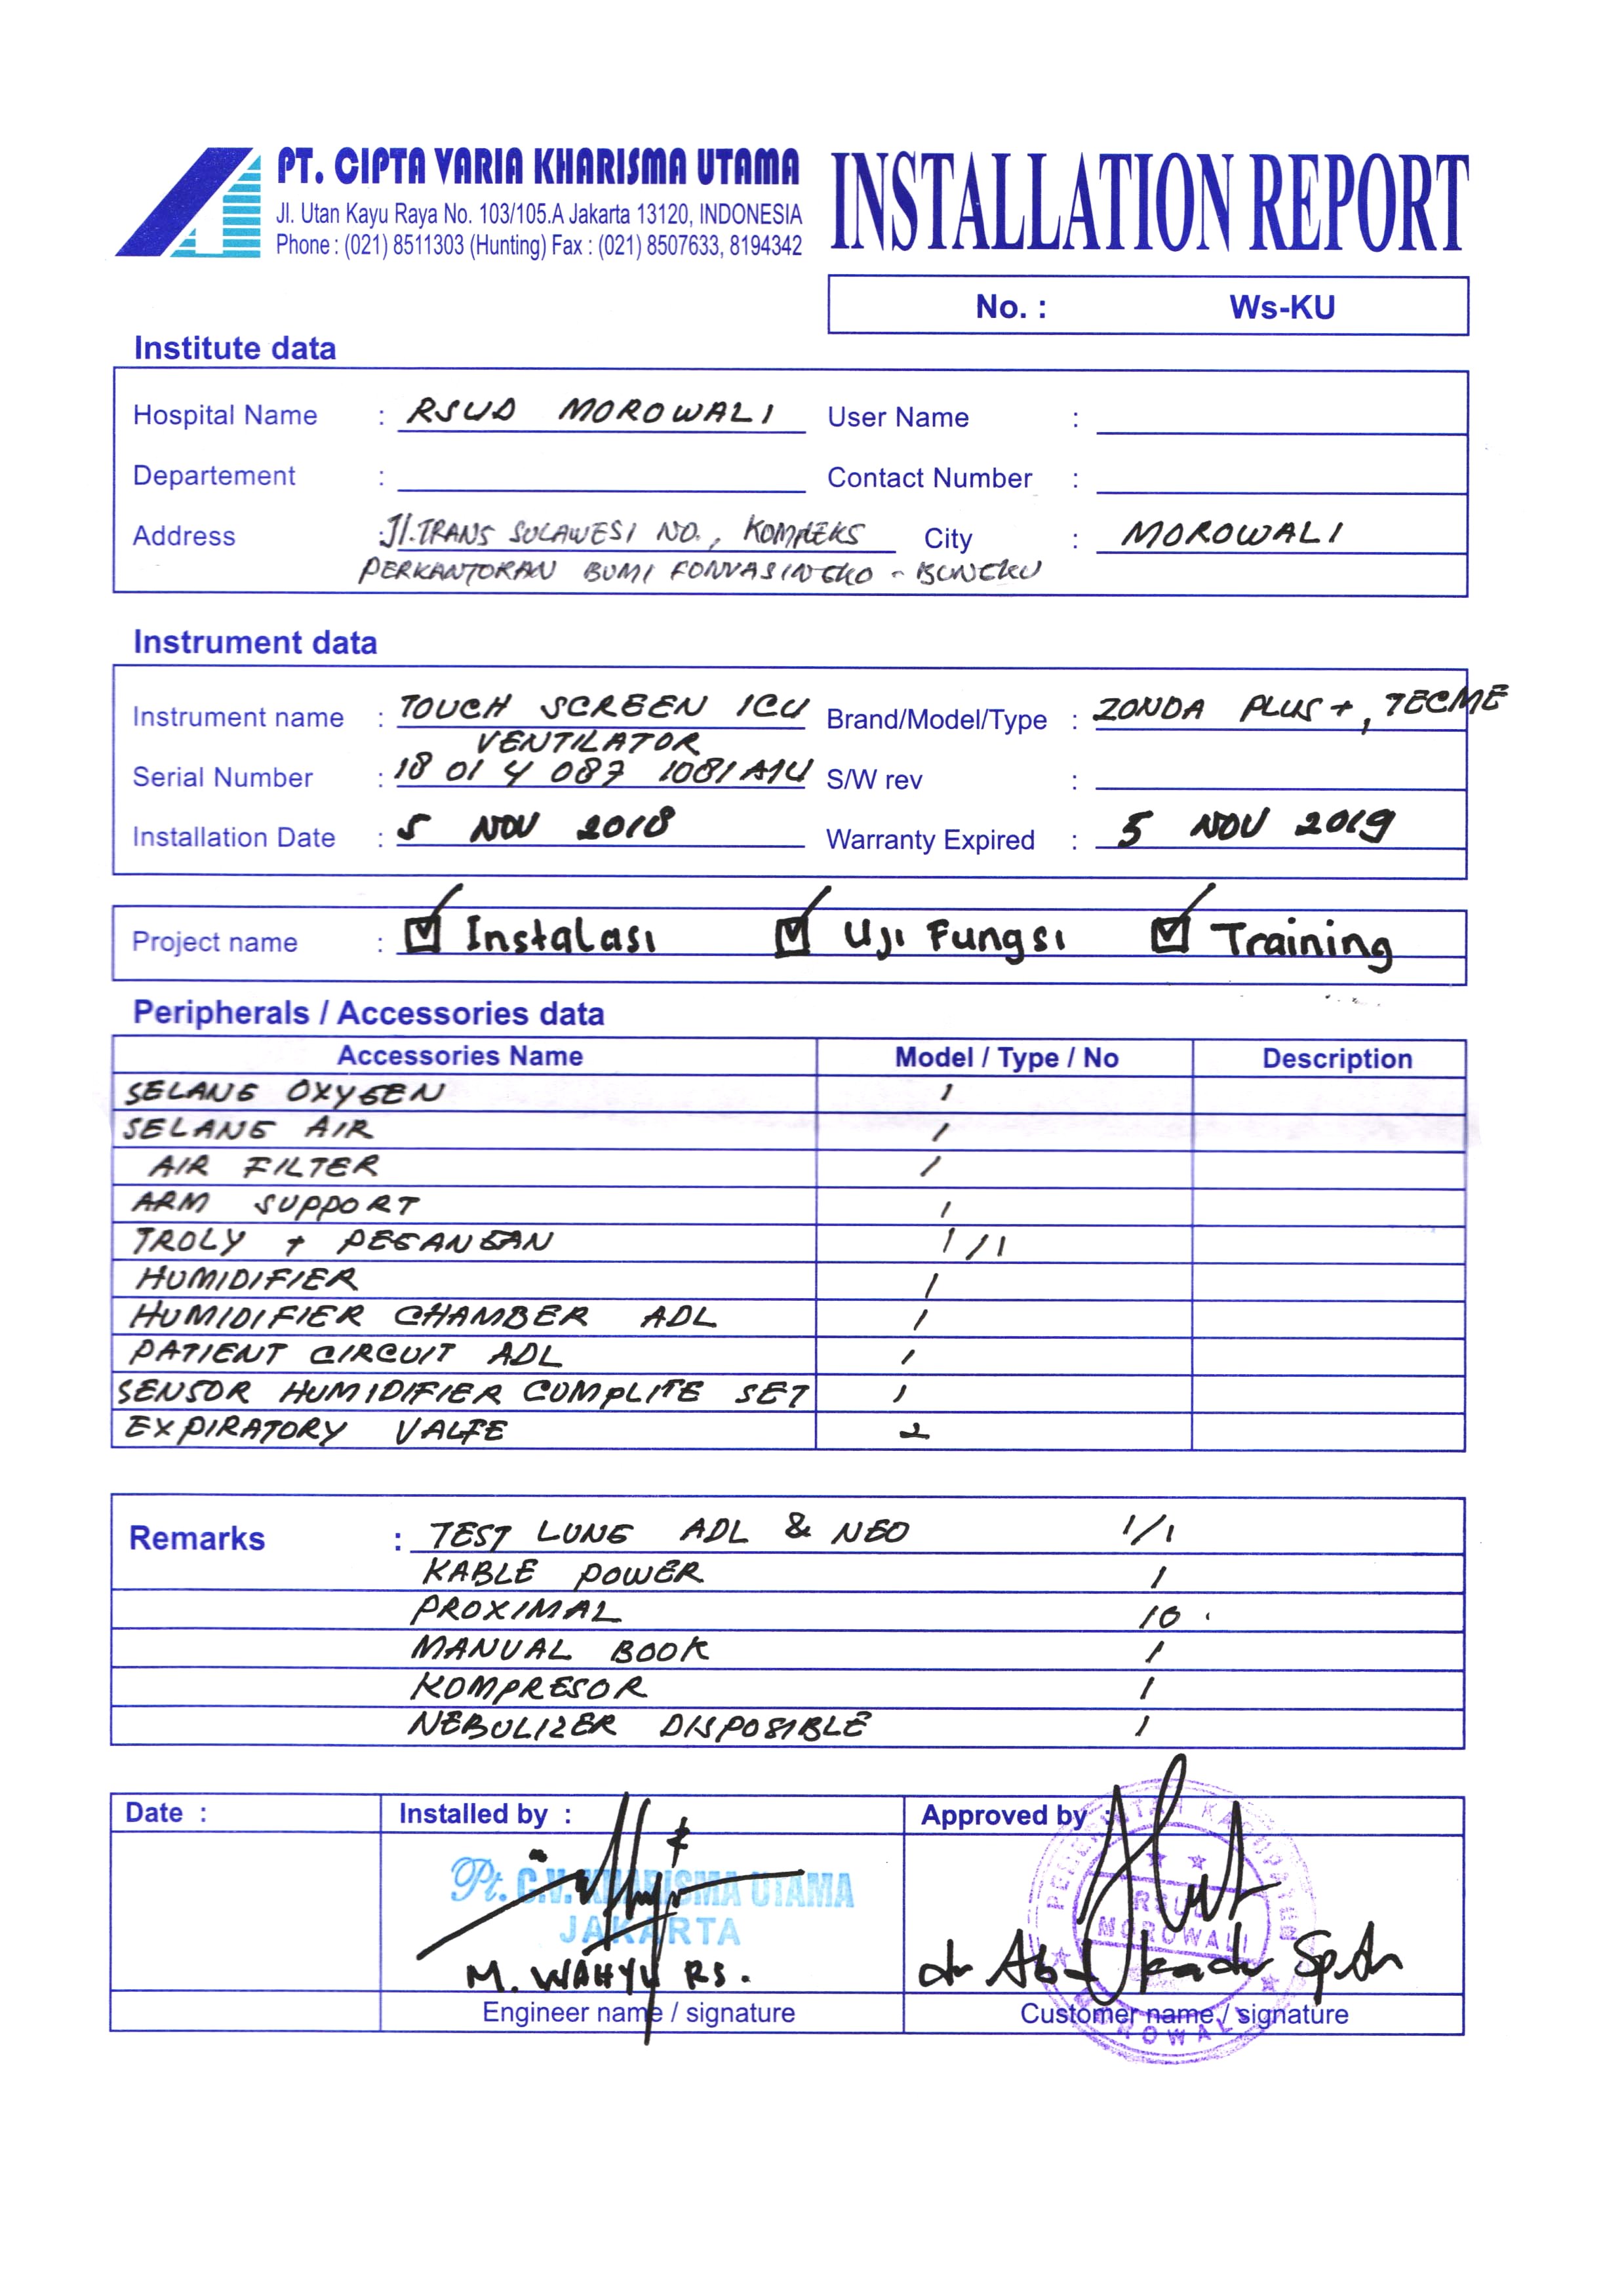 PT. CIPTA VARIA KHARISMA UTAMA
Jl. Utan Kayu Raya No. 103/105.A Jakarta 13120, INDONESIA
Phone : (021) 8511303 (Hunting) Fax : (021) 8507633, 8194342
INSTALLATION REPORT
No. : Ws-KU
Institute data
Hospital Name : RSUD MOROWALI User Name :
Departement : Contact Number :
Address : Jl. TRANS SULAWESI NO., KOMPLEKS City : MOROWALI
PERKANTORAN BUMI FONUASINGKO - BUNGKU
Instrument data
Instrument name : TOUCH SCREEN ICU Brand/Model/Type : ZONDA PLUS +, TECME
VENTILATOR
Serial Number : 18 01 4 087 1081 A1U S/W rev :
Installation Date : 5 NOV 2018 Warranty Expired : 5 NOV 2019
Project name : Instalasi Uji Fungsi Training
Peripherals / Accessories data
Accessories Name Model / Type / No Description
SELANG OXYGEN 1
SELANG AIR 1
AIR FILTER 1
ARM SUPPORT 1
TROLY + PEGANGAN 1/1
HUMIDIFIER 1
HUMIDIFIER CHAMBER ADL 1
PATIENT CIRCUIT ADL 1
SENSOR HUMIDIFIER COMPLITE SET 1
EXPIRATORY VALFE 2
Remarks : TEST LUNG ADL & NEO 1/1
KABLE POWER 1
PROXIMAL 10
MANUAL BOOK 1
KOMPRESOR 1
NEBULIZER DISPOSIBLE 1
Date : Installed by : Approved by :
Pt. C.V. KHARISMA UTAMA
JAKARTA
M. WAHYU RS.
PEMERINTAH KABUPATEN
RSUD
MOROWALI
dr Abd kadir Sp.An
MOROWALI
Engineer name / signature Customer name / signature